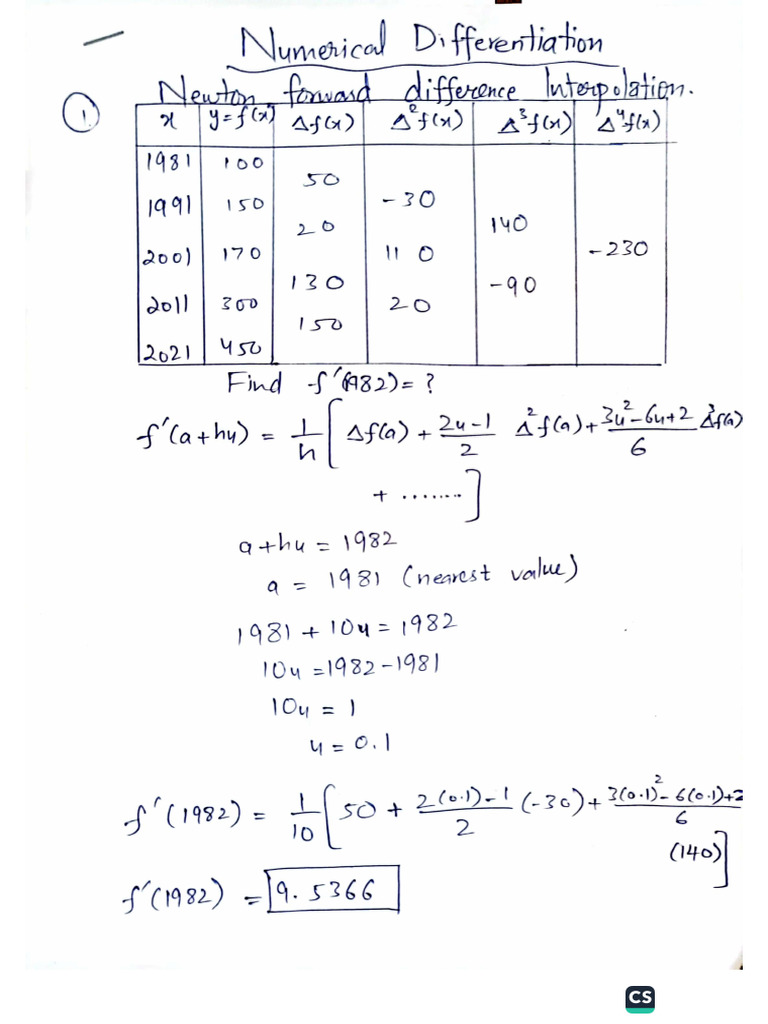 Numerical Differentiation
Newton forward difference Interpolation.
① x y=f(x) Δf(x) Δ²f(x) Δ³f(x) Δ⁴f(x)
1981 100
50
1991 150 -30
20 140
2001 170 110 -230
130 -90
2011 300 20
150
2021 450
Find f'(1982)= ?
f'(a+hu) = 1/h [ Δf(a) + (2u-1)/2 Δ²f(a) + (3u²-6u+2)/6 Δ³f(a)
+ ........ ]
a+hu = 1982
a = 1981 (nearest value)
1981 + 10u = 1982
10u = 1982-1981
10u = 1
u = 0.1
f'(1982) = 1/10 [ 50 + (2(0.1)-1)/2 (-30) + (3(0.1)²-6(0.1)+2)/6
(140) ]
f'(1982) = 9.5366
CS